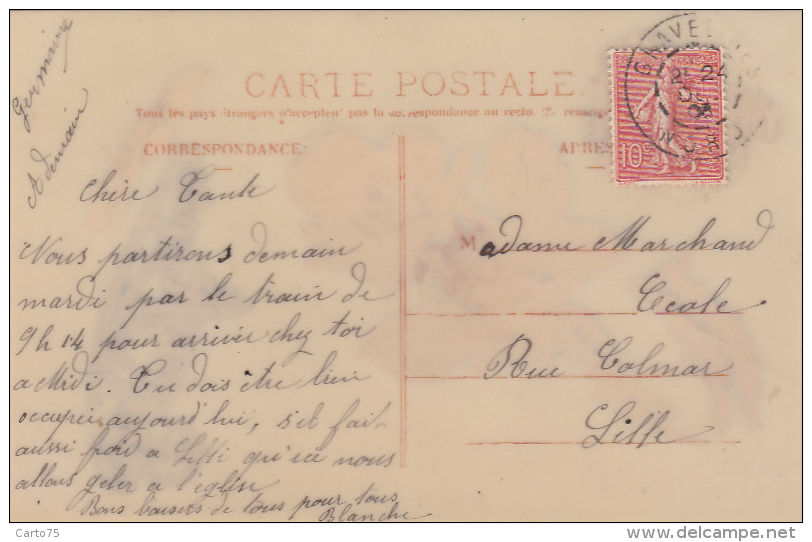 Germaine
A demain
CARTE POSTALE
Tous les pays étrangers n'acceptent pas la correspondance au recto. (Se renseig
CORRESPONDANCE
ADRES
10c
24
Chère Tante
Nous partirons demain
mardi par le train de
9h 14 pour arriver chez toi
a Midi. Tu dois être bien
occupée aujourd'hui, s'il fait
aussi froid a Lille qu'ici nous
allons geler a l'église
Bons baisers de tous pour tous
Blanche
Madame Marchand
Ecole
Rue Colmar
Lille
Carto75
delcampe.net